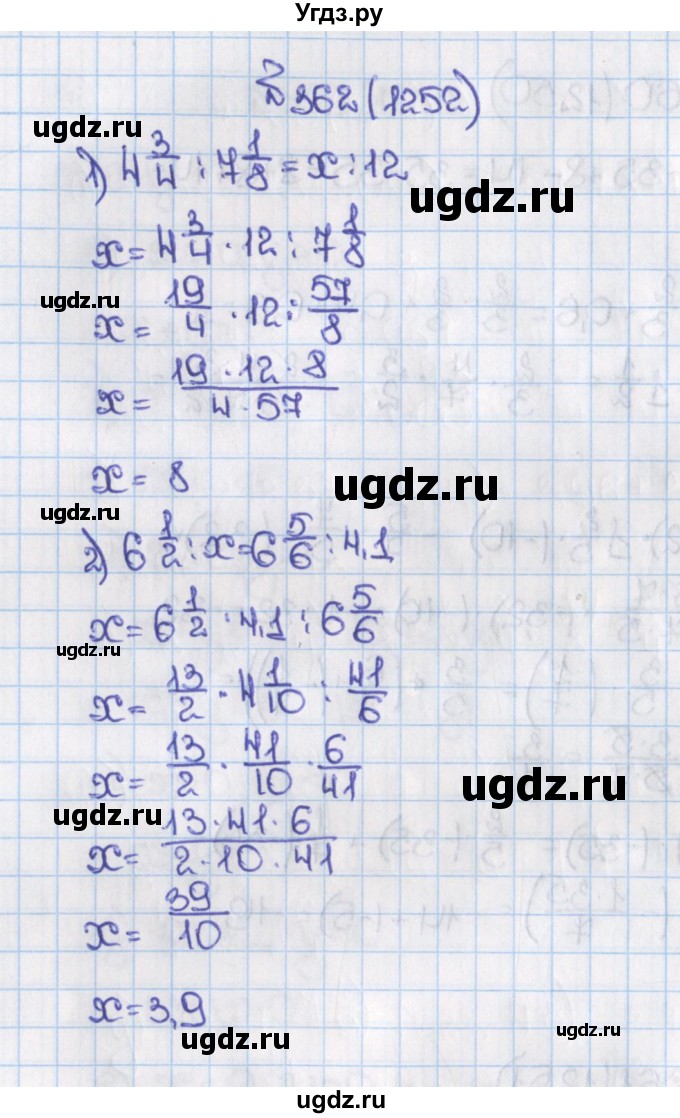 Угдз.ру
№362 (1252)
ugdz.ru
1) 4 3/4 : 7 1/8 = x : 12
ugdz.ru
x = 4 3/4 · 12 : 7 1/8
ugdz.ru
x = 19/4 · 12 : 57/8
x = 19 · 12 · 8 / 4 · 57
x = 8
ugdz.ru
ugdz.ru
2) 6 1/2 : x = 6 5/6 : 4,1
x = 6 1/2 · 4,1 : 6 5/6
ugdz.ru
x = 13/2 · 4 1/10 : 41/6
x = 13/2 · 41/10 · 6/41
ugdz.ru
ugdz.ru
x = 13 · 41 · 6 / 2 · 10 · 41
x = 39/10
x = 3,9
ugdz.ru
ugdz.ru
ugdz.ru